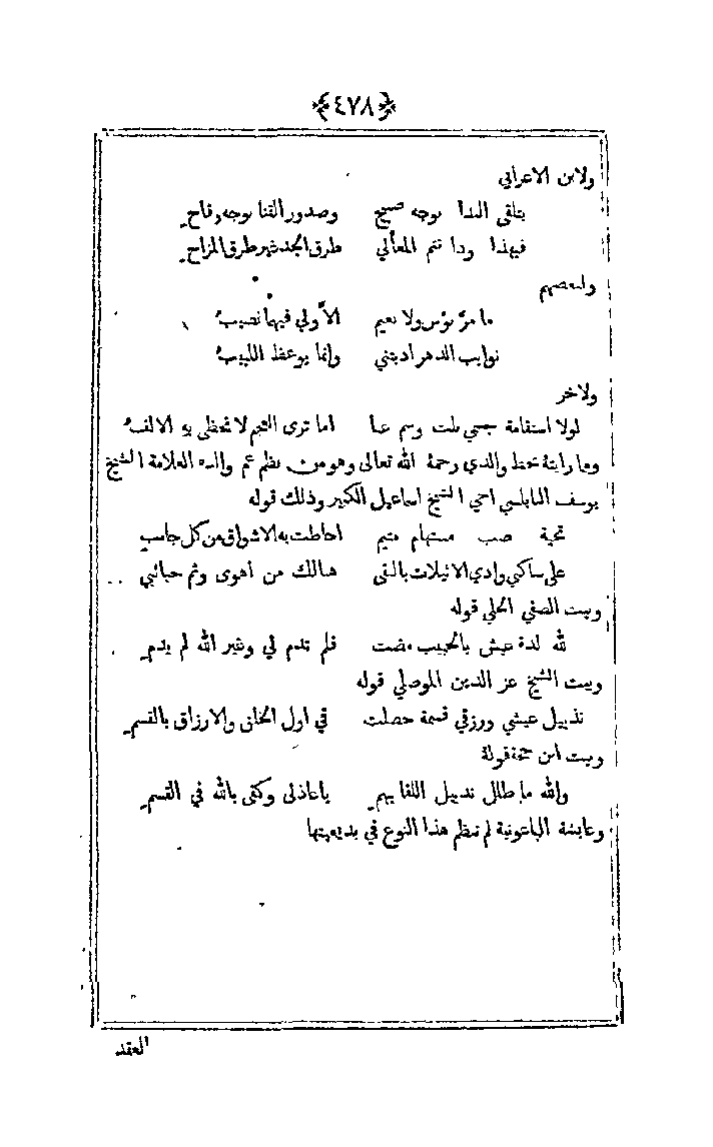 ﴿٤٧٨﴾
ولابن الاعرابي
يتلقى الندا بوجه صبيح وصدور القنا بوجه وقاح
فبهذا وذا تتم المعالي طرق الجد غير طرق المزاح
ولبعضهم
ما مرَّ بؤس ولا نعيم الاَّ ولي فيهما نصيبُ
نوايب الدهر ادبتني وانما يوعظ اللبيبُ
ولاخر
لولا استقامة جسمي ملت وسم اما ترى النجم لا تحظى به الالفُ
وما رايتهُ بخط والدي رحمهُ الله تعالى وهو من نظم عم والده العلامة الشيخ
يوسف النابلسي اخي الشيخ اسماعيل الكبير وذلك قوله
تحية صب مستهام متيم احاطت به الاشواق من كل جانب
على ساكني وادي الاثيلات بالنقى هنالك من اهوى وثم حبائبي
وبيت الصفي الحلي قوله
لله لذة عيش بالحبيب مضت فلم تدم لي وغير الله لم يدم
وبيت الشيخ عز الدين الموصلي قوله
تذييل عيشي ورزقي قسمة حصلت في اول الخلق والارزاق بالقسم
وبيت ابن حجة قولهُ
والله ما طال تذييل اللقا بهم يا عاذلي وكفى بالله في القسم
وعايشة الباعونية لم تنظم هذا النوع في بديعيتها
العقد